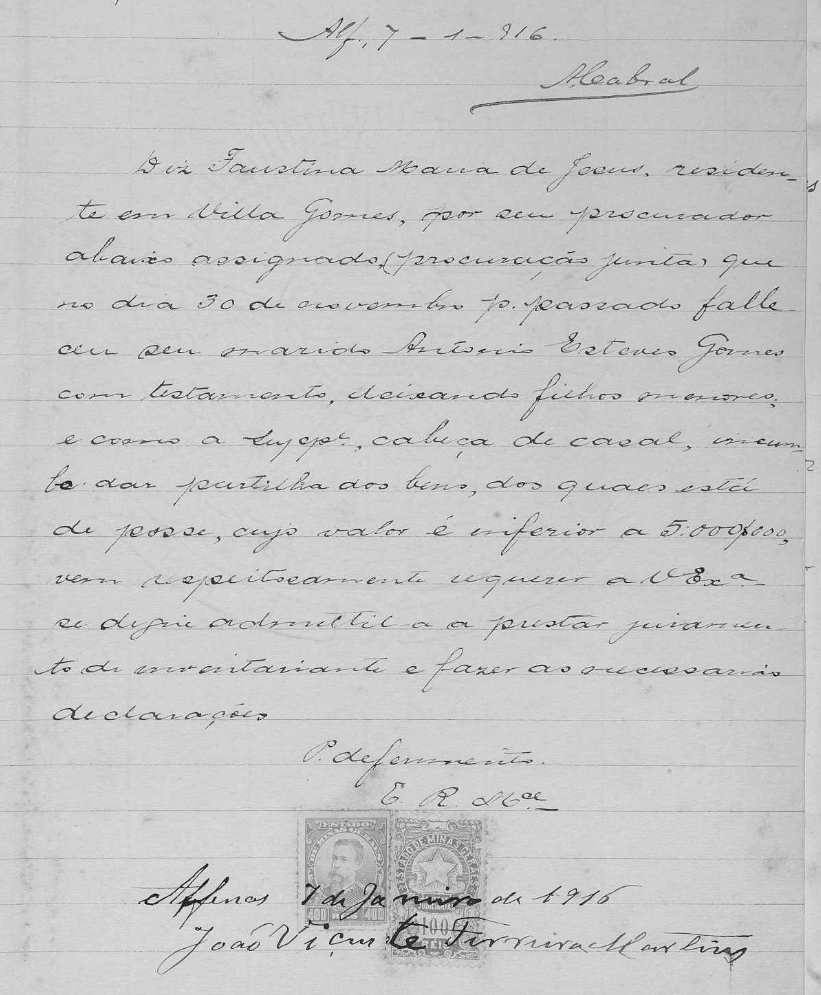 Alf., 7 - 1 - 916.
ACabral
Diz Faustina Maria de Jesus, residen-
te em Villa Gomes, por seu procurador
abaixo assignado, (procuração junta) que
no dia 30 de novembro p. passado falle
ceu seu marido Antonio Esteves Gomes
com testamento, deixando filhos menores,
e como a Suppe., cabeça de casal, incum-
be dar partilha dos bens, dos quaes está
de posse, cujo valor é inferior a 5:000$000,
vem respeitosamente requerer a V Exa
se digne admittil a a prestar juramen-
to de inventariante e fazer as necessarias
declarações
P. deferimento.
E. R. Mce
ESTADO DE MINAS GERAES
400 400
Alfenas 7 de Janeiro de 1916
João Vicente Ferreira Martins